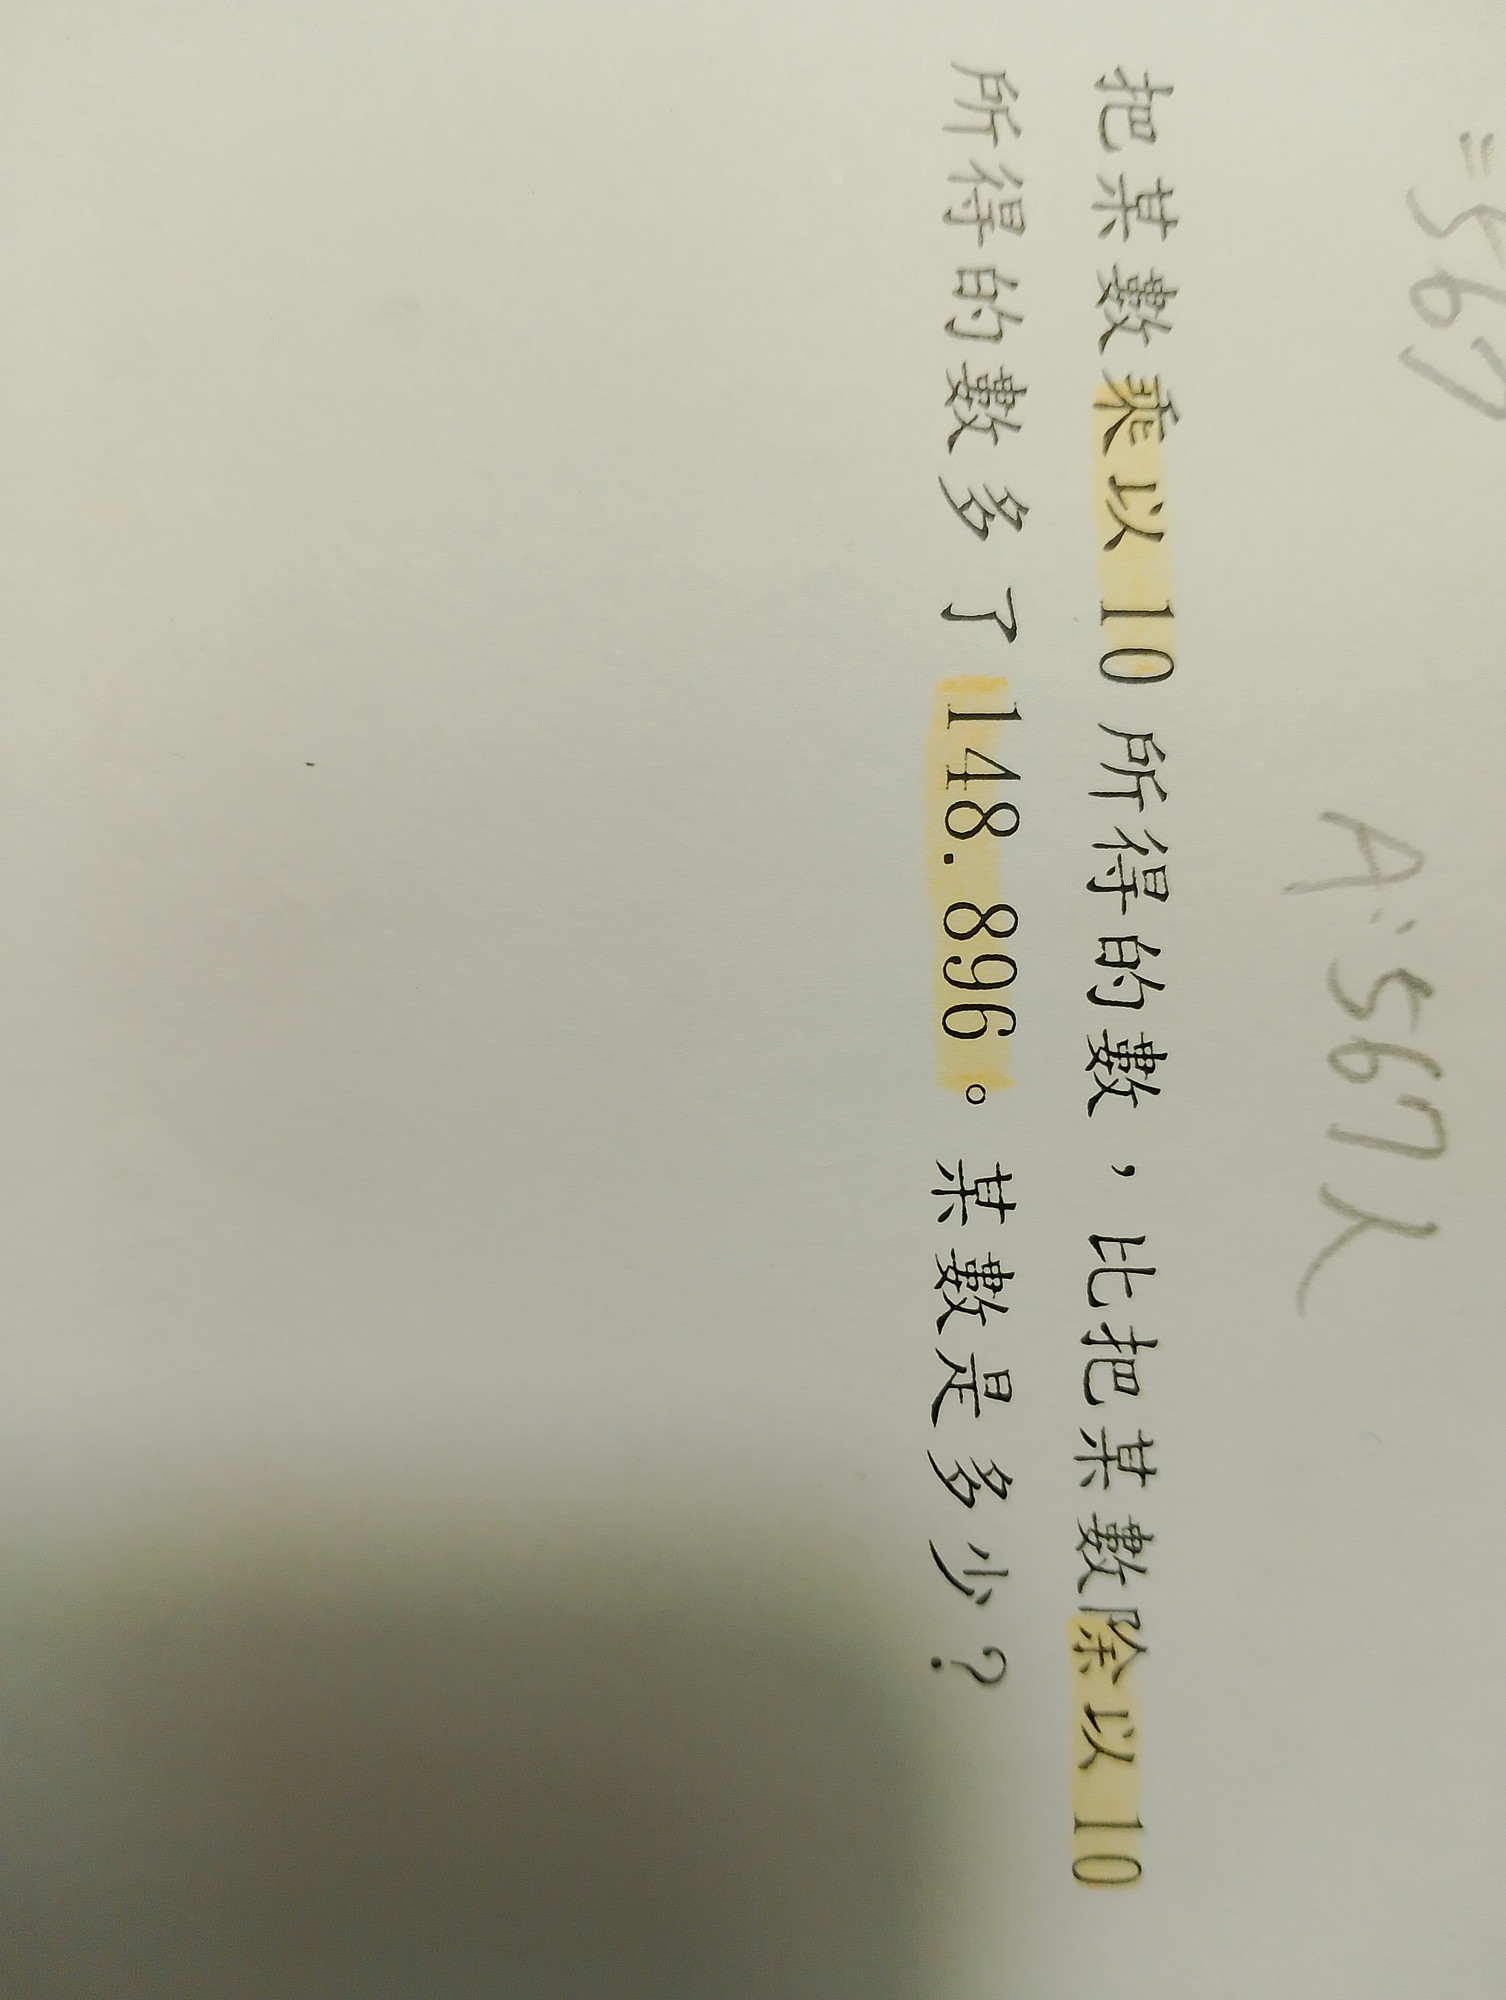 =567
A:567人
把某數乘以10所得的數，比把某數除以10
所得的數多了148.896。某數是多少？